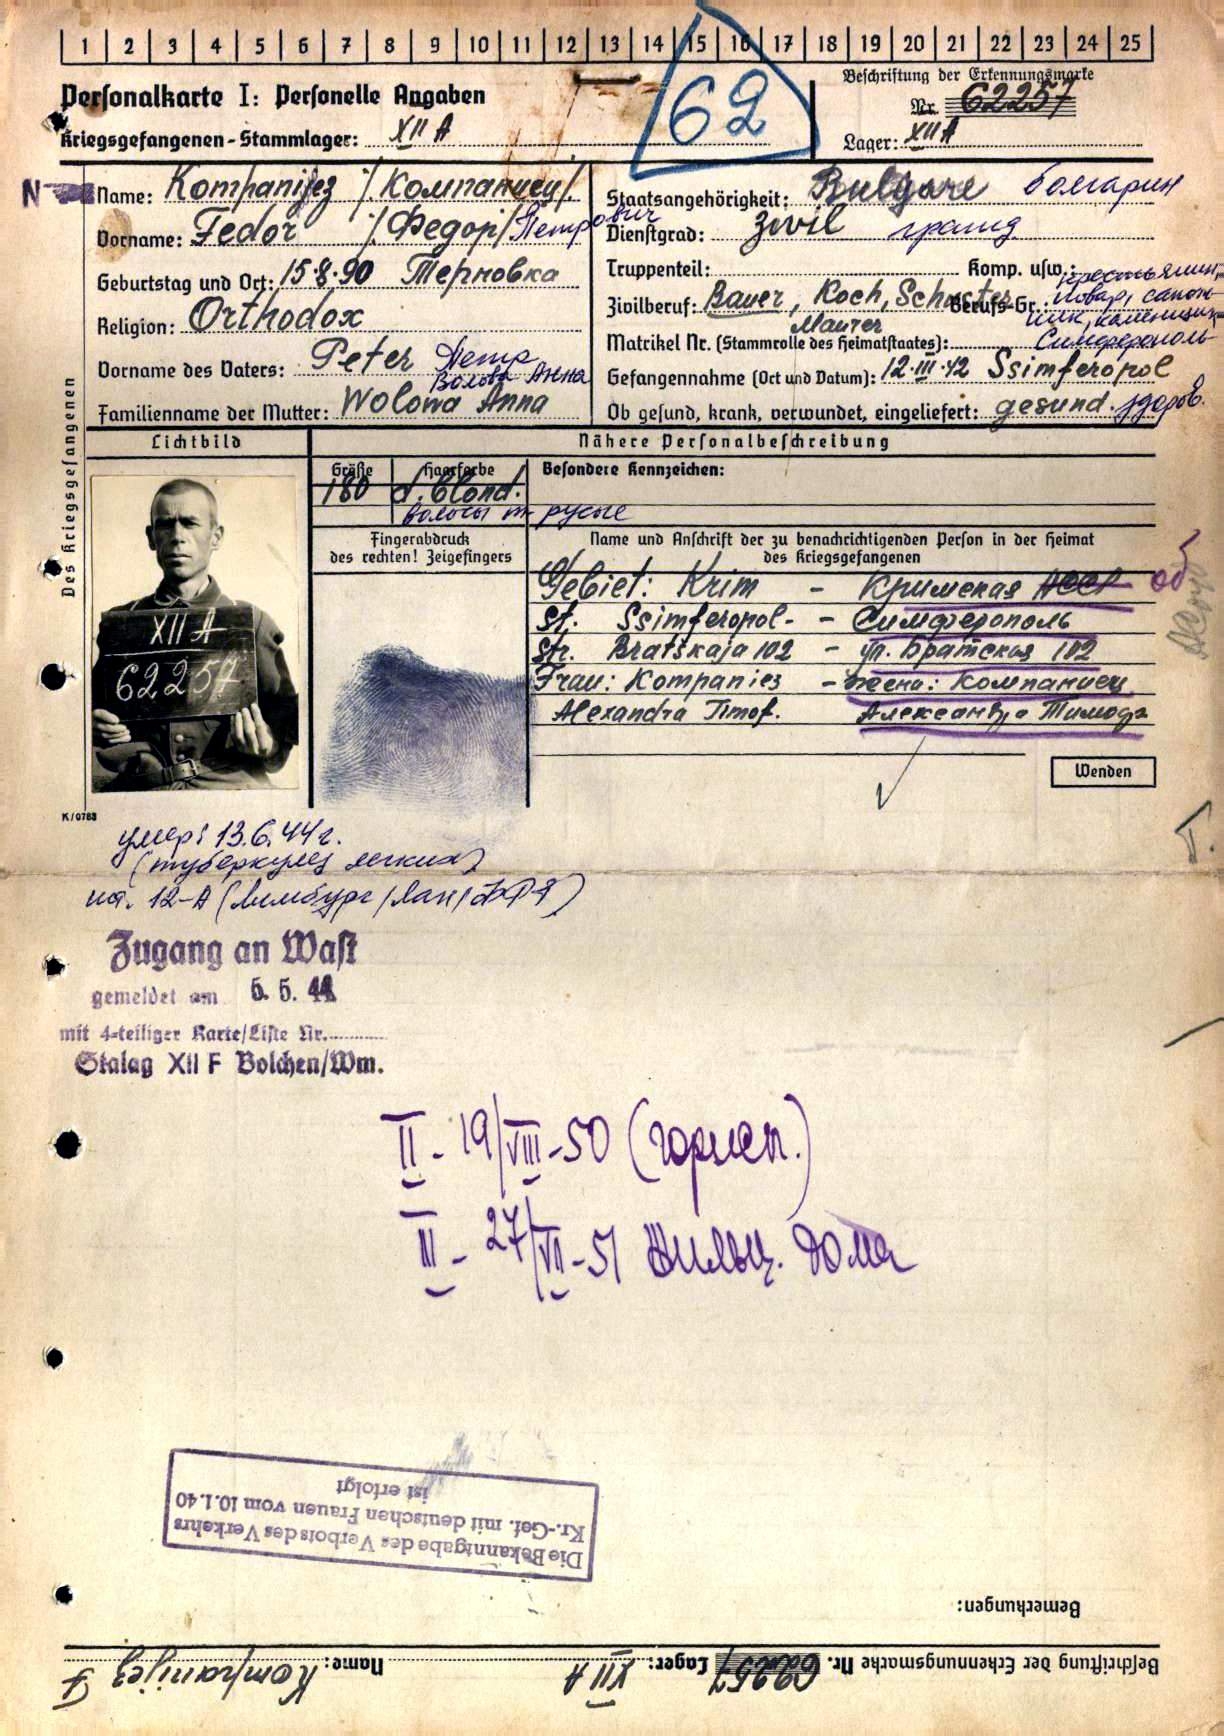 1 2 3 4 5 6 7 8 9 10 11 12 13 14 15 16 17 18 19 20 21 22 23 24 25
Personalkarte I: Personelle Angaben
Kriegsgefangenen-Stammlager: XII A
62
Beschriftung der Erkennungsmarke
Nr. 62257
Lager: XII A
Des Kriegsgefangenen
N
Name: Kompanijez /Компаниец/.
Vorname: Fedor /Федор/ Петрович
Geburtstag und Ort: 15.8.90 Терновка
Religion: Orthodox
Vorname des Vaters: Peter Петр
Волова Анна
Familienname der Mutter: Wolowa Anna
Staatsangehörigkeit: Bulgare болгарин
Dienstgrad: Zivil гражд
Truppenteil: Komp. usw.:
Zivilberuf: Bauer, Koch, Schuster Berufs-Gr.: крестьянин,
Maurer повар, сапож-
ник, каменщик
Matrikel Nr. (Stammrolle des Heimatstaates): Симферополь
Gefangennahme (Ort und Datum): 12.III.42 Ssimferopol
Ob gesund, krank, verwundet, eingeliefert: gesund. здоров.
Lichtbild
Nähere Personalbeschreibung
Größe Haarfarbe Besondere Kennzeichen:
180 d. blond.
волосы т-русые
Fingerabdruck
des rechten! Zeigefingers
Name und Anschrift der zu benachrichtigenden Person in der Heimat
des Kriegsgefangenen
Gebiet: Krim - Крымская АССР об
St. Ssimferopol- - Симферополь
Str. Bratskaja 102 - ул. Братская 102
Frau: Kompaniez - жена: Компаниец
Alexandra Timof. Александра Тимоф
XII A
62257
Wenden
K/0783
умер: 13.6.44 г.
(туберкулез легких)
XII-A
Zugang an Wast
gemeldet am 5. 5. 44
mit 4-teiliger Karte/Liste Nr.
Stalag XII F Bolchen/Wm.
II - 19/VIII-50
III - 27/VII-51
Die Bekanntgabe des Verbots des Verkehrs
Kr.-Gef. mit deutschen Frauen vom 10.1.40
ist erfolgt
Bemerkungen:
Beschriftung der Erkennungsmarke Nr. 62257 Lager: XII A Name: Kompanijez F